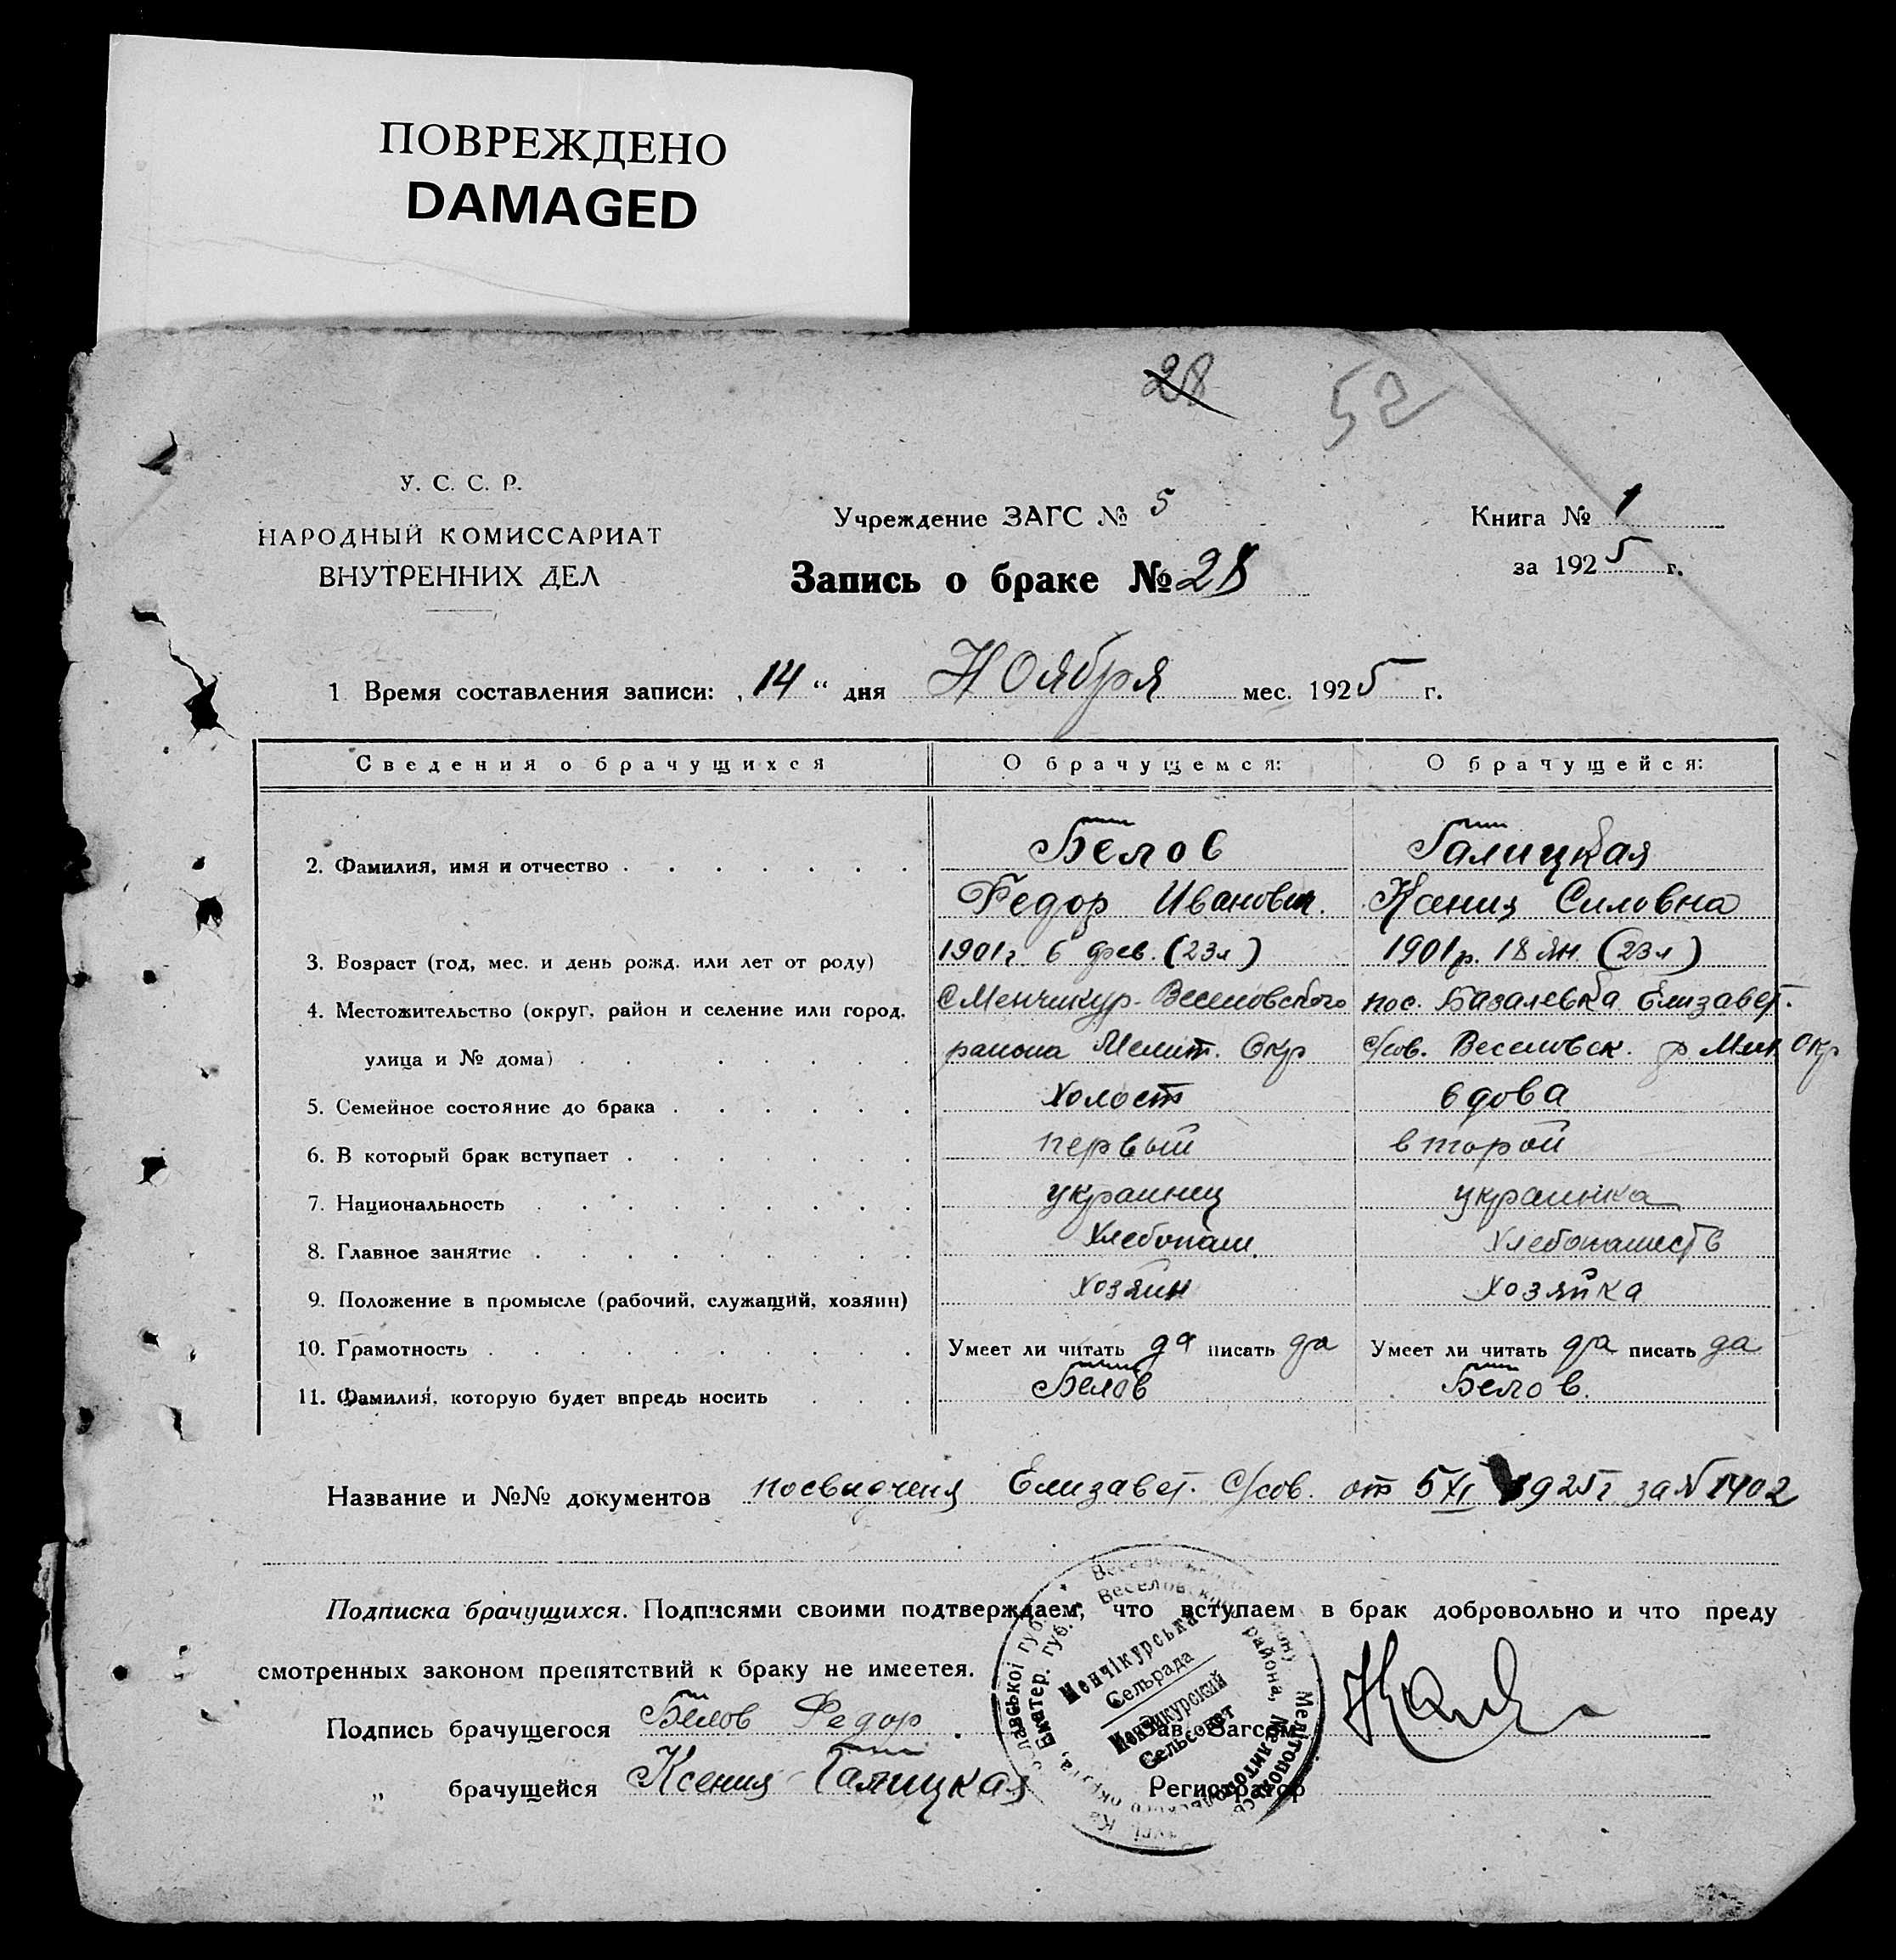 ПОВРЕЖДЕНО
DAMAGED
28 52
У. С. С. Р.
НАРОДНЫЙ КОМИССАРИАТ
ВНУТРЕННИХ ДЕЛ
Учреждение ЗАГС № 5
Запись о браке № 28
Книга № 1
за 1925 г.
1 Время составления записи: „14“ дня Ноября мес. 1925 г.
Сведения о брачущихся О брачущемся: О брачущейся:
2. Фамилия, имя и отчество Белов Галицкая
Федор Иванович. Ксения Силовна
3. Возраст (год, мес. и день рожд. или лет от роду) 1901 г. 6 фев. (23 л) 1901 р. 18 ян. (23 л)
4. Местожительство (округ, район и селение или город, С Менчикур. Веселовского пос. Базалевка Елизавет.
улица и № дома) района Мелит. Окр с/сов. Веселовск. р Мел Окр
5. Семейное состояние до брака холост вдова
6. В который брак вступает первый второй
7. Национальность украинец украинка
8. Главное занятие хлебопаш. хлебопашеств
9. Положение в промысле (рабочий, служащий, хозяин) хозяин хозяйка
10. Грамотность Умеет ли читать да писать да Умеет ли читать да писать да
11. Фамилия, которую будет впредь носить Белов Белов.
Название и №№ документов посвидченя Елизавет. с/сов. от 5 XI 1925 г за № 1402
Подписка брачущихся. Подписями своими подтверждаем, что вступаем в брак добровольно и что преду
смотренных законом препятствий к браку не имеется.
Подпись брачущегося Белов Федор
„ брачущейся Ксения Галицкая
Зав. Загсом
Регистратор
Менчікурська
Сельрада
Менчикурский
Сельсовет
Екатер. губ. Веселовского района, Мелитопольского округа,